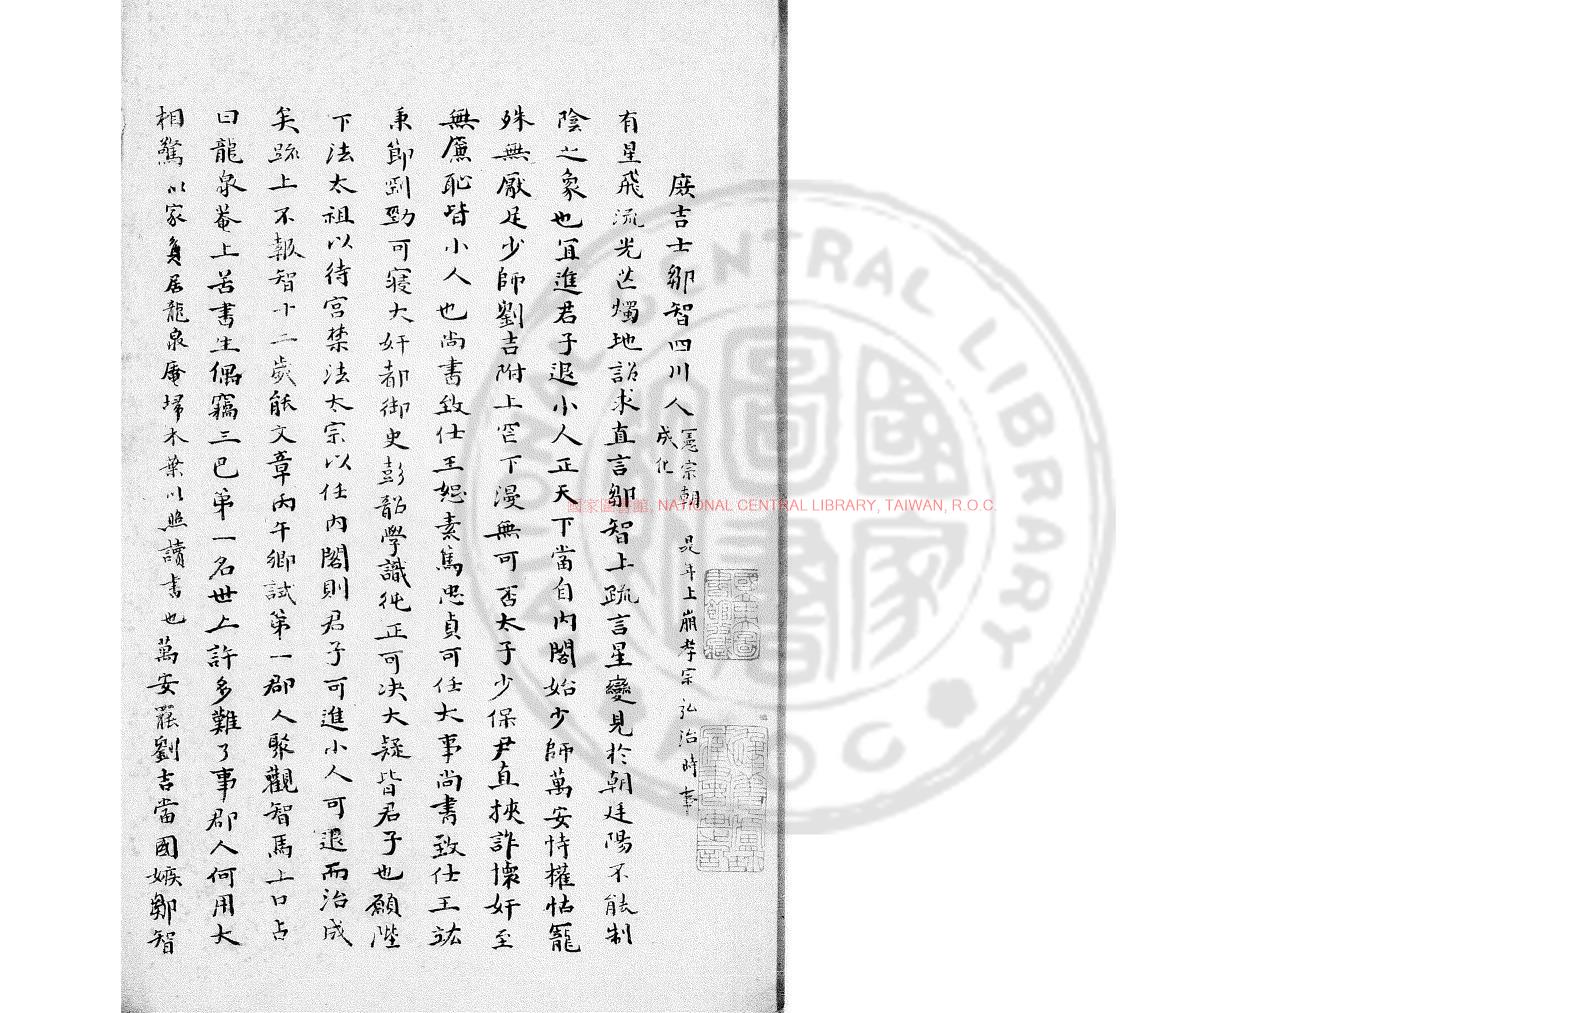 庶吉士鄒智四川人 憲宗朝 是年上崩孝宗弘治時事
成化
有星飛流光芒燭地詔求直言鄒智上疏言星變見於朝廷陽不能制
陰之象也宜進君子退小人正天下當自内閣始少師萬安恃權怙寵
殊無厭足少師劉吉附上罔下漫無可否太子少保尹直挾詐懷奸至
無廉恥皆小人也尚書致仕王恕素篤忠貞可任大事尚書致仕王竑
秉節剛勁可寝大奸都御史彭韶學識純正可决大疑皆君子也願陛
下法太祖以待宫禁法太宗以任内閣則君子可進小人可退而治成
矣疏上不報智十二歲能文章丙午鄉試第一郡人聚觀智馬上口占
曰龍泉菴上苦書生偶竊三巴第一名世上許多難了事郡人何用大
相驚以家貧居龍泉庵埽木葉以照讀書也萬安罷劉吉當國嫉鄒智
國家圖書館, NATIONAL CENTRAL LIBRARY, TAIWAN, R.O.C.
NATIONAL CENTRAL LIBRARY